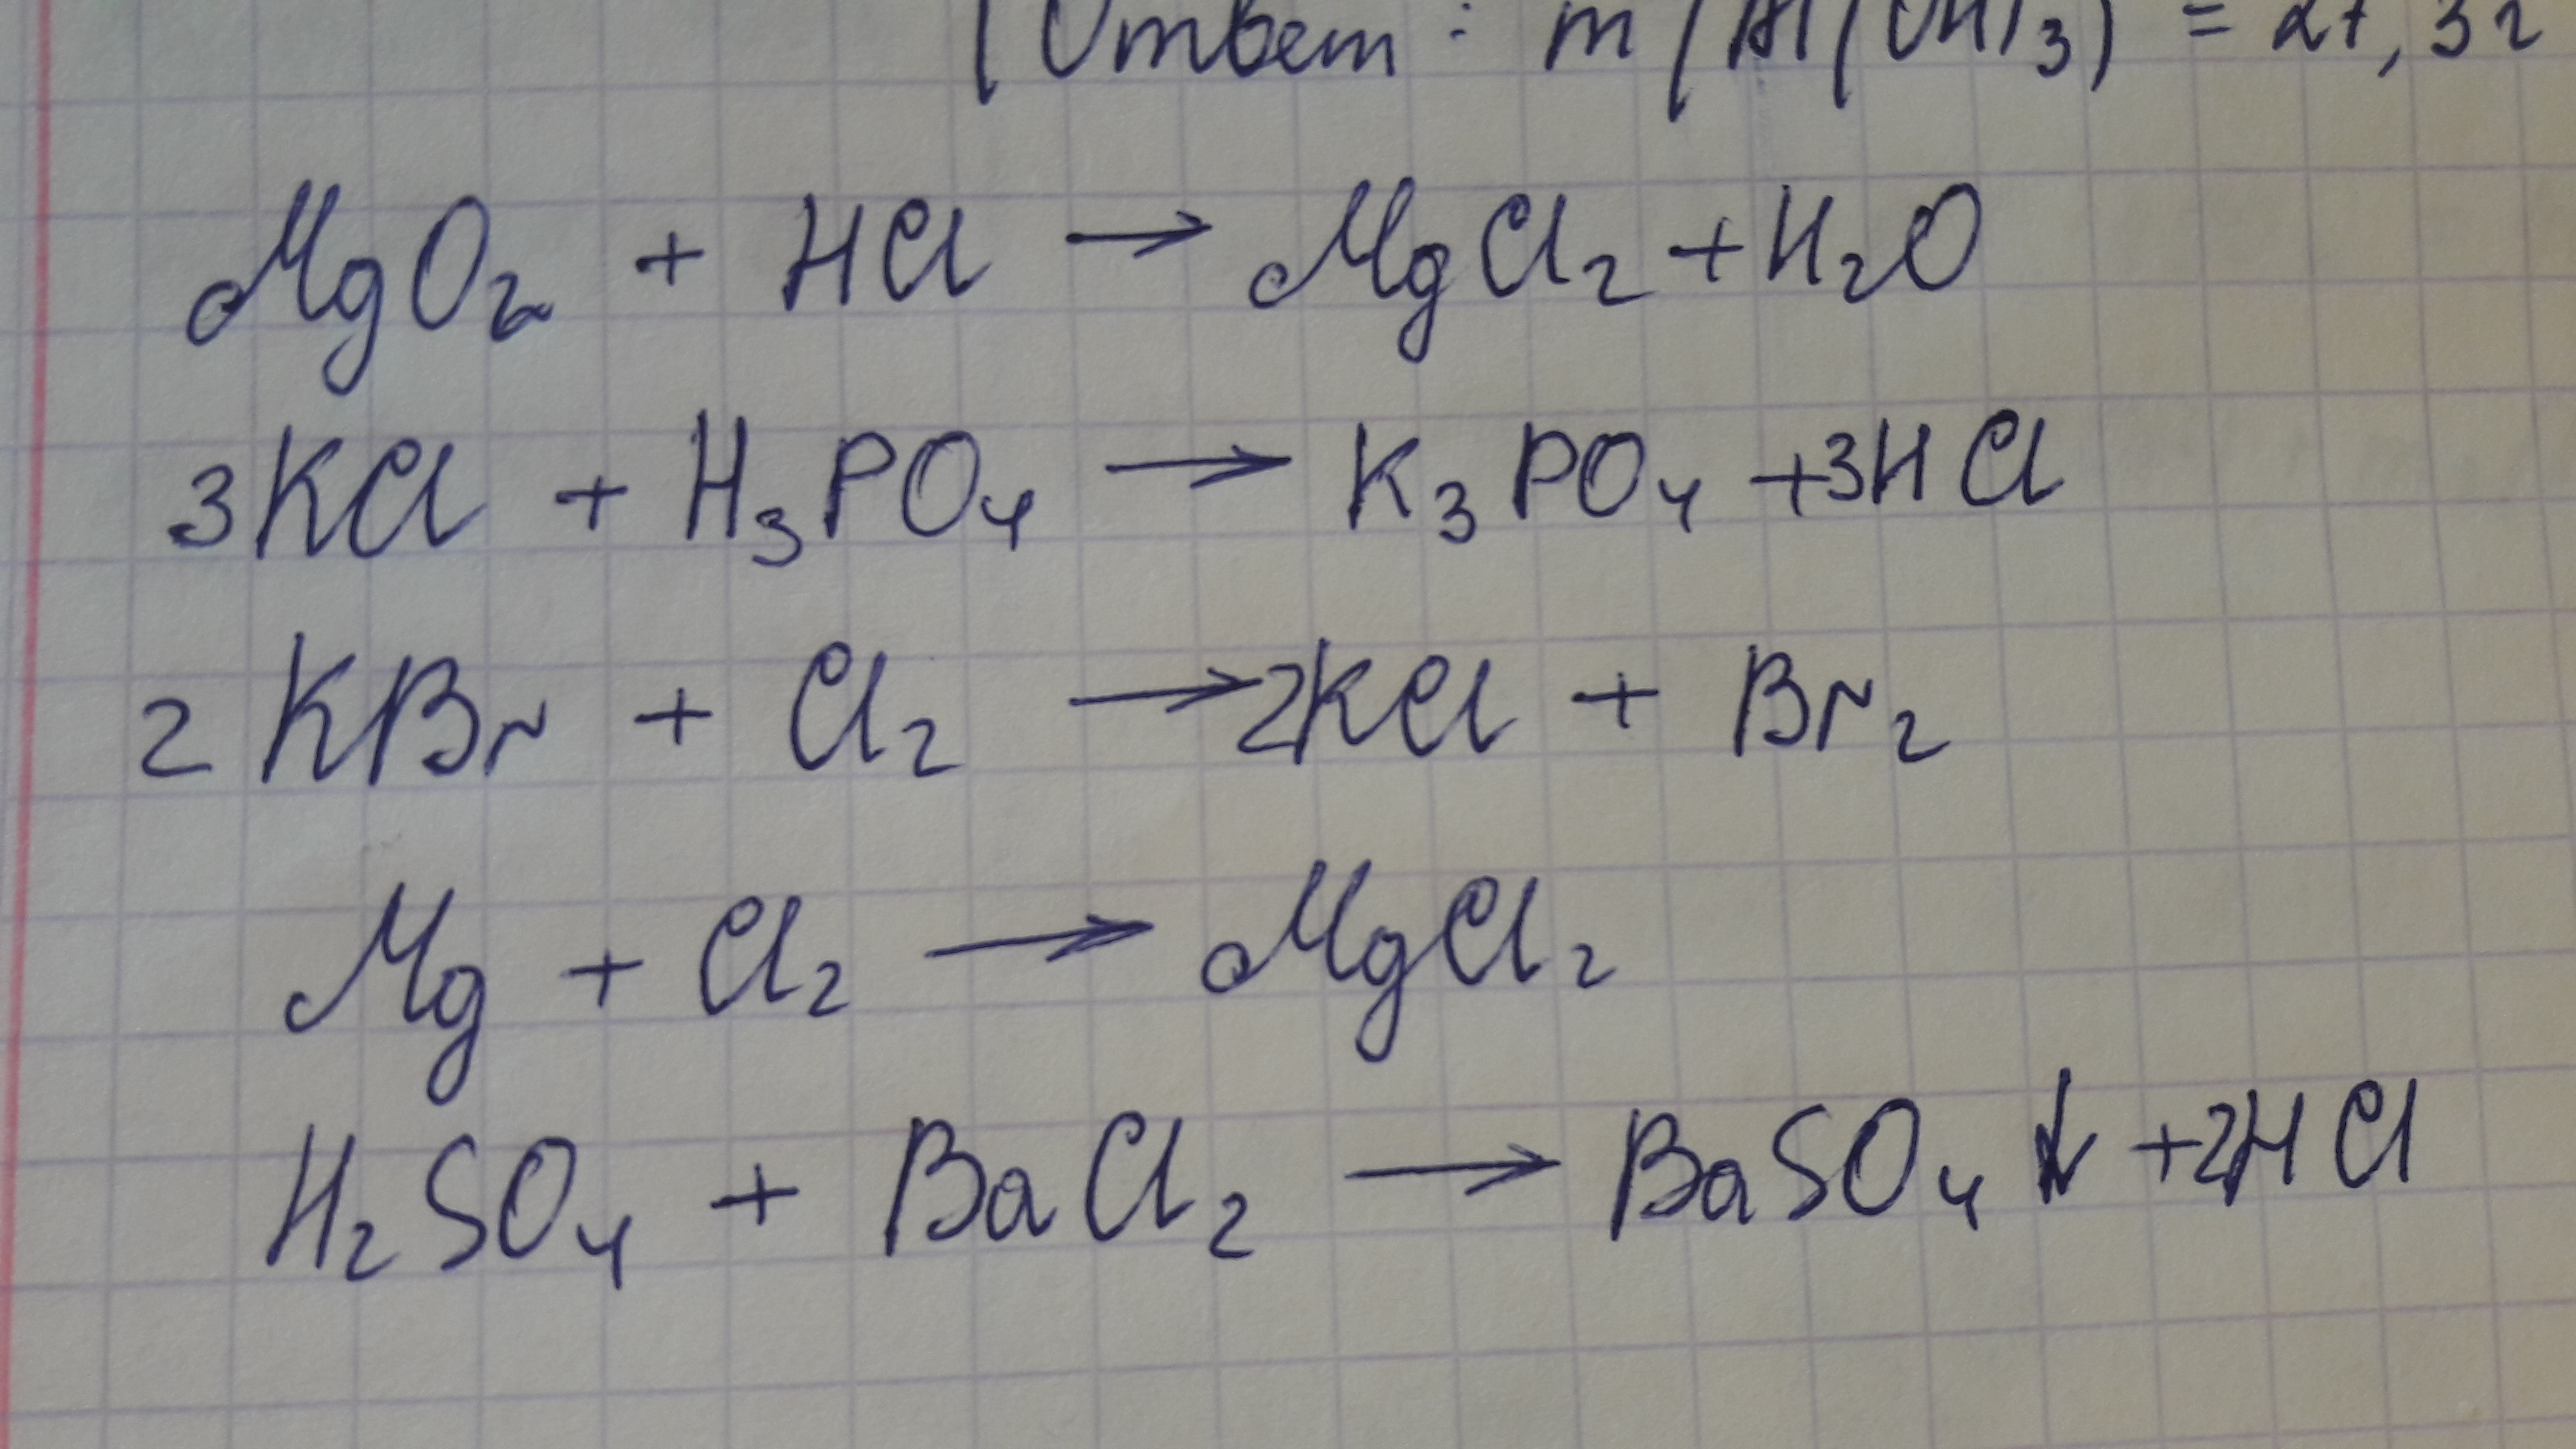 Ответ: m(Al(OH)3) = 27,3г
MgO2 + HCl → MgCl2 + H2O
3KCl + H3PO4 → K3PO4 + 3HCl
2KBr + Cl2 → 2KCl + Br2
Mg + Cl2 → MgCl2
H2SO4 + BaCl2 → BaSO4↓ + 2HCl